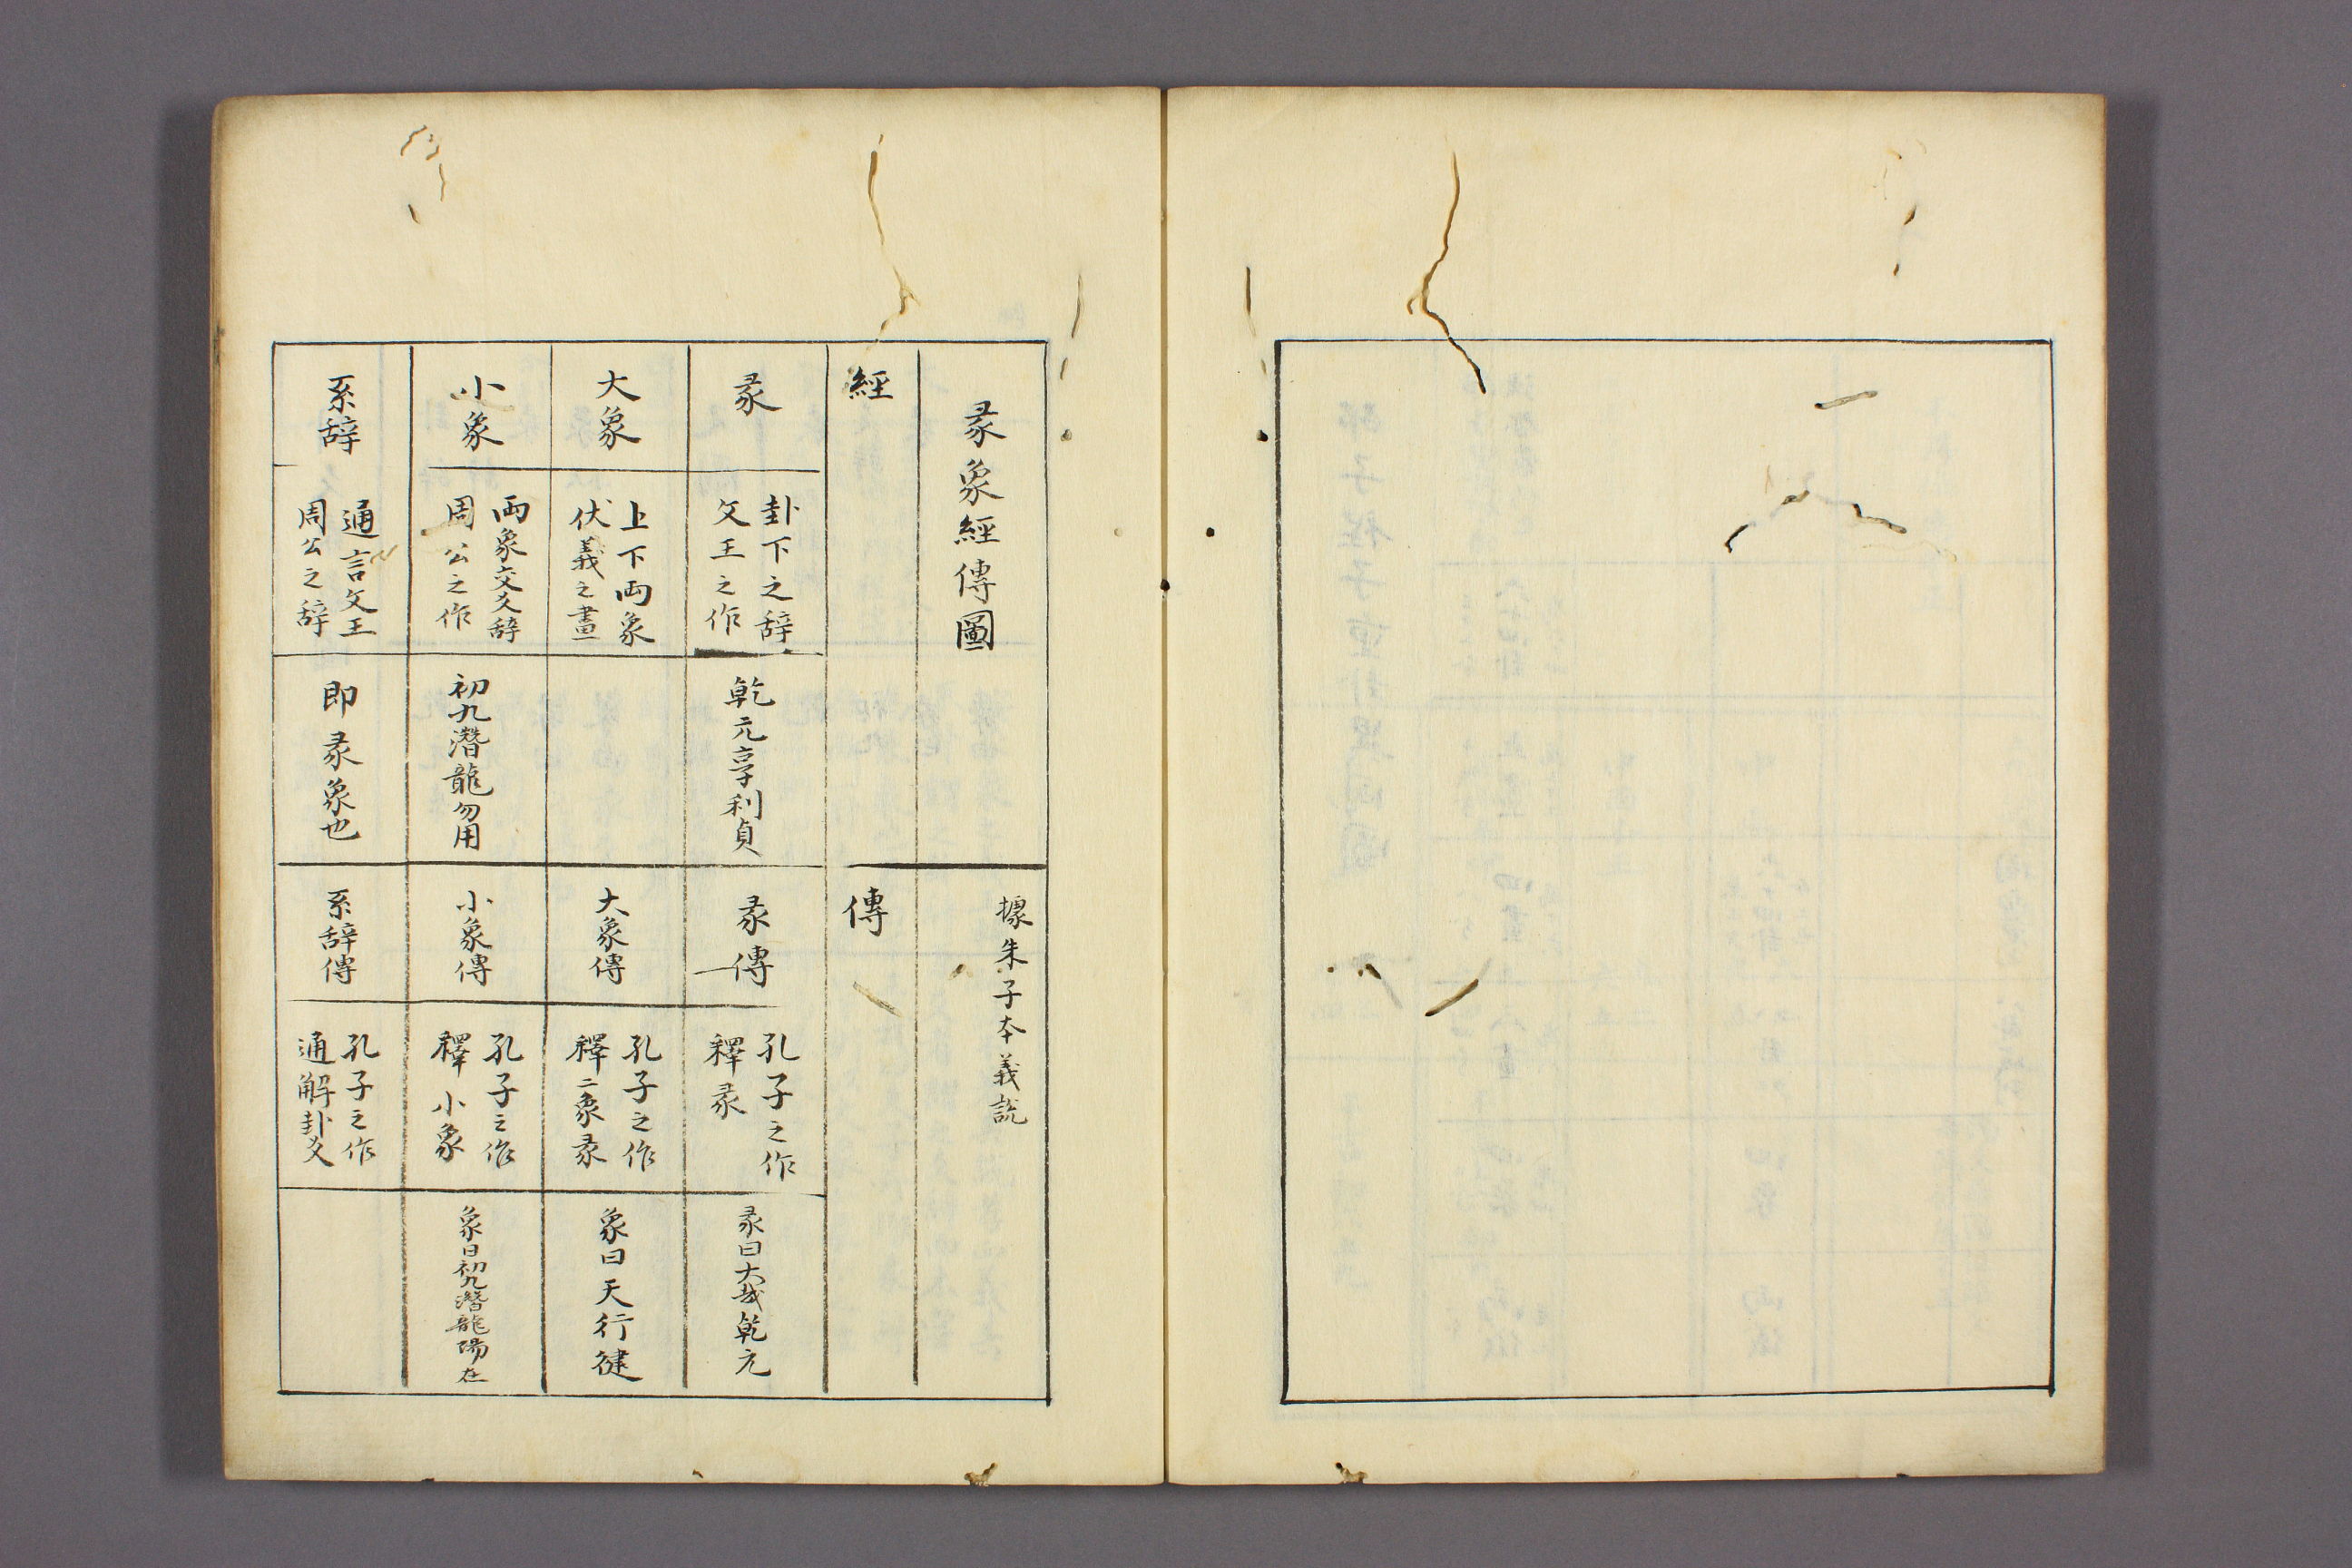 彖象經傳圖
據朱子本義説
經
傳
彖
卦下之辞
文王之作
乾元亨利貞
彖傳
孔子之作
釋彖
彖曰大哉乾元
大象
上下両象
伏義之畫
大象傳
孔子之作
釋二象彖
象曰天行健
小象
両象交爻辞
周公之作
初九潛龍勿用
小象傳
孔子之作
釋小象
象曰初九潛龍陽在
系辞
通言文王
周公之辞
即彖象也
系辞傳
孔子之作
通解卦爻